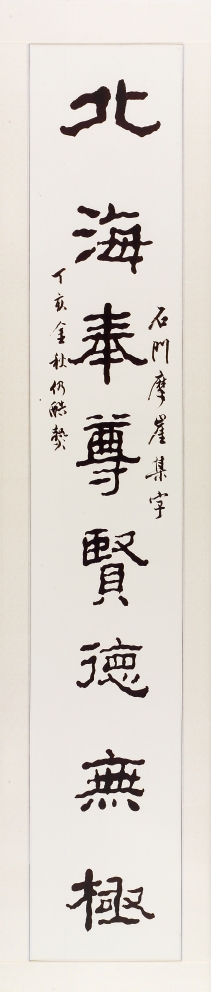 北海奉尊賢德無極
石門摩崖集字
丁亥金秋仍酷熱